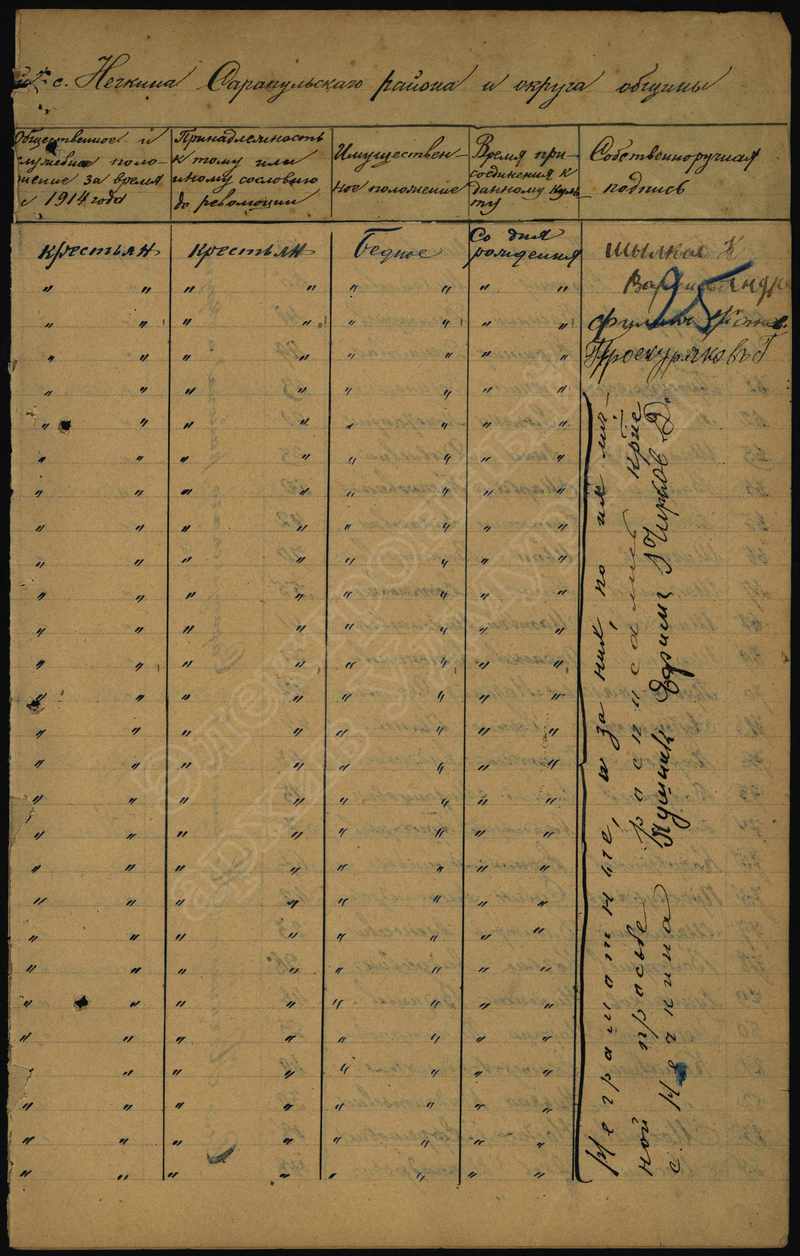 с. Нечкина Сарапульскаго района и округа общины
Общественное и служебное положение за время с 1914 года
Принадлежность к тому или иному сословию до революции
Имущественное положение
Время присоединения к данному культу
Собственноручная подпись
крестьян крестьян Бедное Со дня рождения
" " " " " " " "
" " " " " " " "
" " " " " " " " Проскуряковъ Г
" " " " " " " "
" " " " " " " "
" " " " " " " "
" " " " " " " "
" " " " " " " "
" " " " " " " "
" " " " " " " "
" " " " " " " "
" " " " " " " "
" " " " " " " "
" " " " " " " "
" " " " " " " "
" " " " " " " "
" " " " " " " "
" " " " " " " "
" " " " " " " "
" " " " " " " "
" " " " " " " "
" " " " " " " "
" " " " " " " "
" " " " " " " "
" " " " " " " "
" " " " " " " "
" " " " " " " "
Неграмотные, а за них, по их лич-
ной просьбе расписались
с. Нечкина Чирков Д.
25